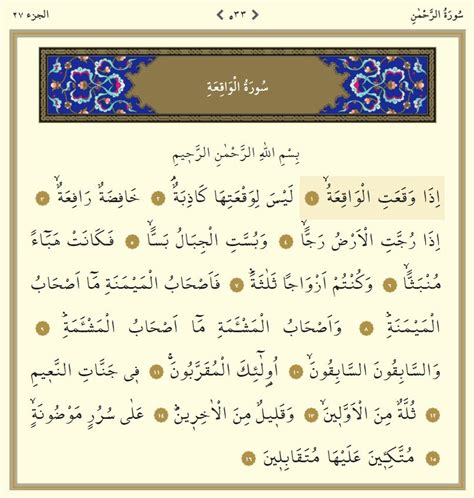 سُورَةُ الرَّحْمٰنِ ٥٣٣ الجزء ٢٧
سُورَةُ الْوَاقِعَةِ
بِسْمِ اللهِ الرَّحْمٰنِ الرَّحٖيمِ
اِذَا وَقَعَتِ الْوَاقِعَةُۙ ١ لَيْسَ لِوَقْعَتِهَا كَاذِبَةٌۢ ٢ خَافِضَةٌ رَافِعَةٌۙ ٣
اِذَا رُجَّتِ الْاَرْضُ رَجًّاۙ ٤ وَبُسَّتِ الْجِبَالُ بَسًّاۙ ٥ فَكَانَتْ هَبَٓاءً
مُنْبَثًّاۙ ٦ وَكُنْتُمْ اَزْوَاجًا ثَلٰثَةًؕ ٧ فَاَصْحَابُ الْمَيْمَنَةِ مَٓا اَصْحَابُ
الْمَيْمَنَةِؕ ٨ وَاَصْحَابُ الْمَشْـَٔمَةِ مَٓا اَصْحَابُ الْمَشْـَٔمَةِؕ ٩
وَالسَّابِقُونَ السَّابِقُونَۙ ١٠ اُو۬لٰٓئِكَ الْمُقَرَّبُونَۚ ١١ فٖي جَنَّاتِ النَّعٖيمِ
١٢ ثُلَّةٌ مِنَ الْاَوَّلٖينَۙ ١٣ وَقَلٖيلٌ مِنَ الْاٰخِرٖينَؕ ١٤ عَلٰى سُرُرٍ مَوْضُونَةٍۙ
١٥ مُتَّكِـٖٔينَ عَلَيْهَا مُتَقَابِلٖينَ ١٦